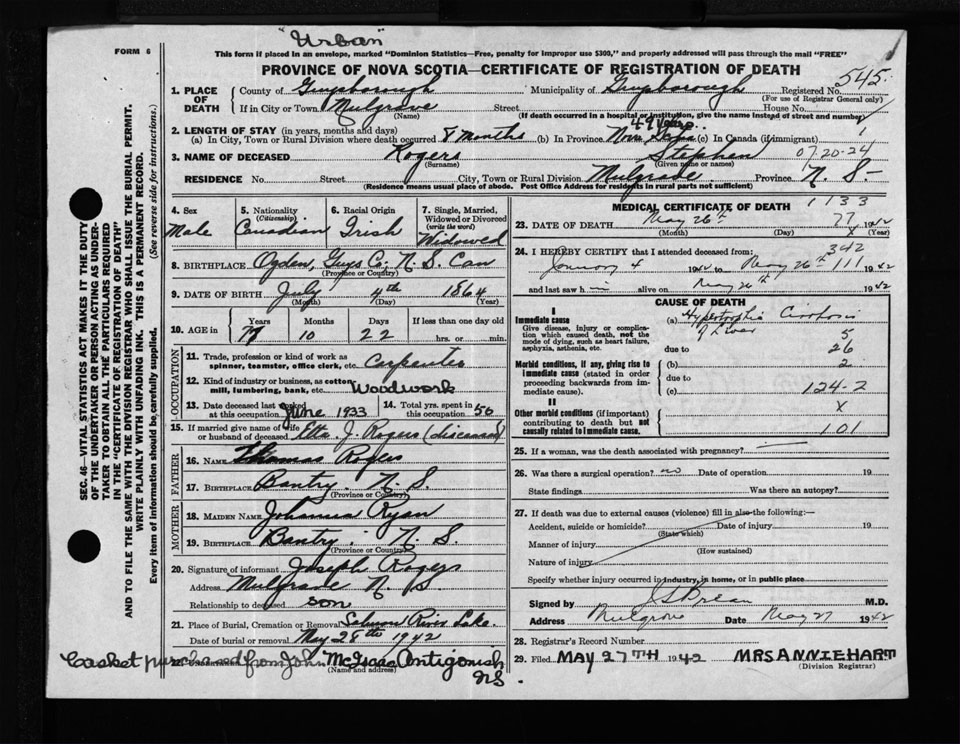 "Urban"
FORM 6
This form if placed in an envelope, marked "Dominion Statistics—Free, penalty for improper use $300," and properly addressed will pass through the mail "FREE"
PROVINCE OF NOVA SCOTIA—CERTIFICATE OF REGISTRATION OF DEATH
545
1. PLACE OF DEATH County of Guysborough Municipality of Guysborough Registered No.
(For use of Registrar General only)
If in City or Town Mulgrave Street House No.
(Name) (If death occurred in a hospital or institution, give the name instead of street and number)
2. LENGTH OF STAY (in years, months and days) 49 Years
(a) In City, Town or Rural Division where death occurred 8 months (b) In Province Nova (c) In Canada (if immigrant) 1
3. NAME OF DECEASED Rogers Stephen 0720-24
(Surname) (Given name or names)
RESIDENCE No. Street City, Town or Rural Division Mulgrave Province N. S.-
(Residence means usual place of abode. Post Office Address for residents in rural parts not sufficient)
SEC. 46—VITAL STATISTICS ACT MAKES IT THE DUTY
OF THE UNDERTAKER OR PERSON ACTING AS UNDER-
TAKER TO OBTAIN ALL THE PARTICULARS REQUIRED
IN THE "CERTIFICATE OF REGISTRATION OF DEATH"
AND TO FILE THE SAME WITH THE DIVISION REGISTRAR WHO SHALL ISSUE THE BURIAL PERMIT.
WRITE PLAINLY WITH UNFADING INK. THIS IS A PERMANENT RECORD.
Every item of information should be carefully supplied. (See reverse side for instructions.)
4. Sex 5. Nationality (Citizenship) 6. Racial Origin 7. Single, Married, Widowed or Divorced (write the word)
Male Canadian Irish Widowed
8. BIRTHPLACE Ogden, Guys Co; N. S. Can
(Province or Country)
9. DATE OF BIRTH July 4th 1864
(Month) (Day) (Year)
10. AGE in Years Months Days If less than one day old
77 10 22 hrs. or min.
OCCUPATION
11. Trade, profession or kind of work as spinner, teamster, office clerk, etc. Carpenter
12. Kind of industry or business, as cotton mill, lumbering, bank, etc. Woodwork
13. Date deceased last worked at this occupation June 1933 14. Total yrs. spent in this occupation 50
15. If married give name of wife or husband of deceased J. Rogers (diseased)
FATHER
16. Name Thomas Rogers
17. Birthplace Bantry. N. S.
(Province or Country)
MOTHER
18. Maiden Name Johanna Ryan
19. Birthplace Bantry. N. S.
(Province or Country)
20. Signature of informant Joseph Rogers
Address Mulgrave N. S.
Relationship to deceased son
21. Place of Burial, Cremation or Removal Salmon River Lake.
Date of burial or removal May 28th 1942
Casket purchased from John McIsaac Antigonish
(Name and address) N.S.
MEDICAL CERTIFICATE OF DEATH 1133
23. DATE OF DEATH May 26th 77 1942
(Month) (Day) (Year)
24. I HEREBY CERTIFY that I attended deceased from: 342
January 4 1942 to May 26th 111 1942
and last saw h im alive on May 26th 1942
CAUSE OF DEATH
I
Immediate cause (a) Hypertrophic Cirrhosis
Give disease, injury or complication which caused death, not the mode of dying, such as heart failure, asphyxia, asthenia, etc.
of Liver 5
due to 26
Morbid conditions, if any, giving rise to immediate cause (stated in order proceeding backwards from immediate cause).
(b) 2
due to
(c) 124-2
II
Other morbid conditions (if important) contributing to death but not causally related to immediate cause.
X
101
25. If a woman, was the death associated with pregnancy?
26. Was there a surgical operation? no Date of operation 19
State findings Was there an autopsy?
27. If death was due to external causes (violence) fill in also the following:—
Accident, suicide or homicide? Date of injury 19
(State which)
Manner of injury
(How sustained)
Nature of injury
Specify whether injury occurred in industry, in home, or in public place
Signed by M.D.
Address Mulgrave May 27 1942
28. Registrar's Record Number
29. Filed MAY 27TH 1942 MRS ANNIE HART
(Division Registrar)